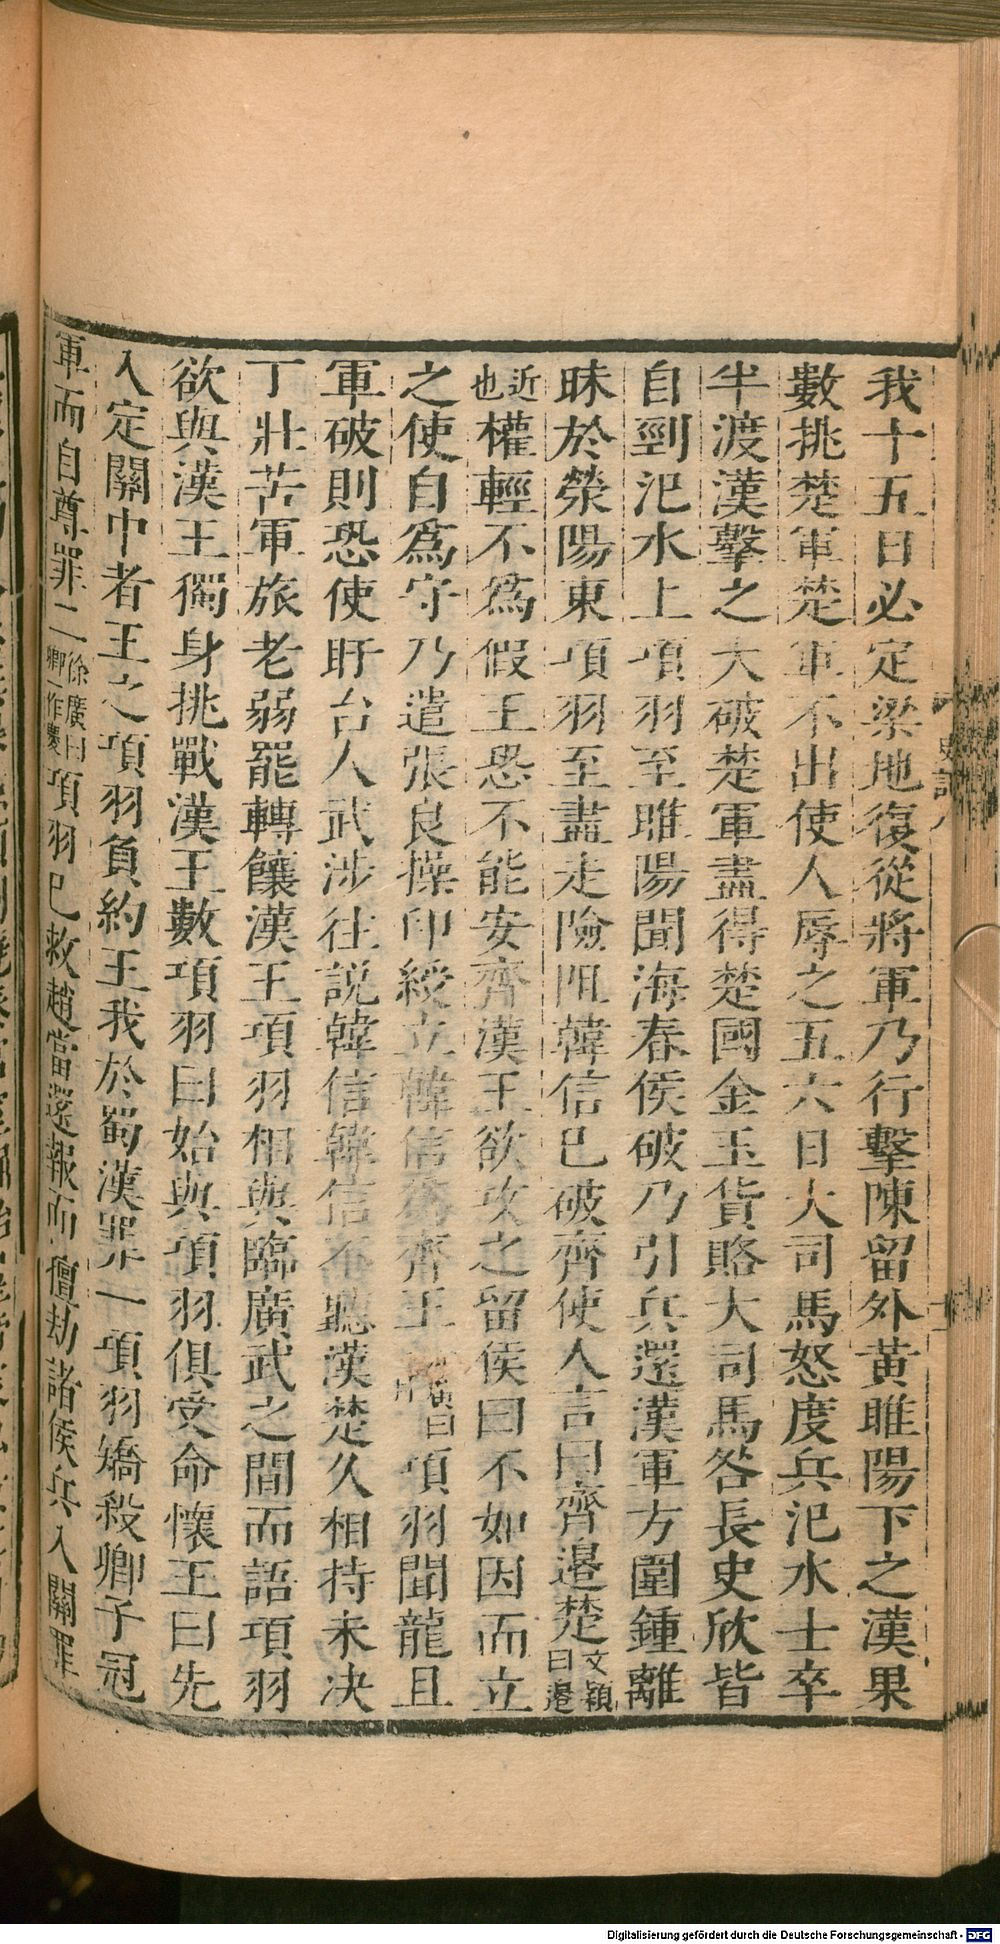 我十五日必定梁地復從將軍乃行擊陳留外黃睢陽下之漢果
數挑楚軍楚軍不出使人辱之五六日大司馬怒度兵汜水士卒
半渡漢擊之大破楚軍盡得楚國金玉貨賂大司馬咎長史欣皆
自剄汜水上項羽至睢陽聞海春侯破乃引兵還漢軍方圍鍾離
昧於滎陽東項羽至盡走險阻韓信已破齊使人言曰齊邊楚文穎曰邊
近也權輕不為假王恐不能安齊漢王欲攻之留侯曰不如因而立
之使自為守乃遣張良操印綬立韓信為齊王廣曰項羽聞龍且
軍破則恐使盱台人武涉往說韓信韓信不聽漢楚久相持未决
丁壯苦軍旅老弱罷轉饟漢王項羽相與臨廣武之間而語項羽
欲與漢王獨身挑戰漢王數項羽曰始與項羽俱受命懷王曰先
入定關中者王之項羽負約王我於蜀漢罪一項羽矯殺卿子冠
軍而自尊罪二徐廣曰卿一作慶項羽已救趙當還報而擅劫諸侯兵入關罪
史記八
Digitalisierung gefördert durch die Deutsche Forschungsgemeinschaft - DFG